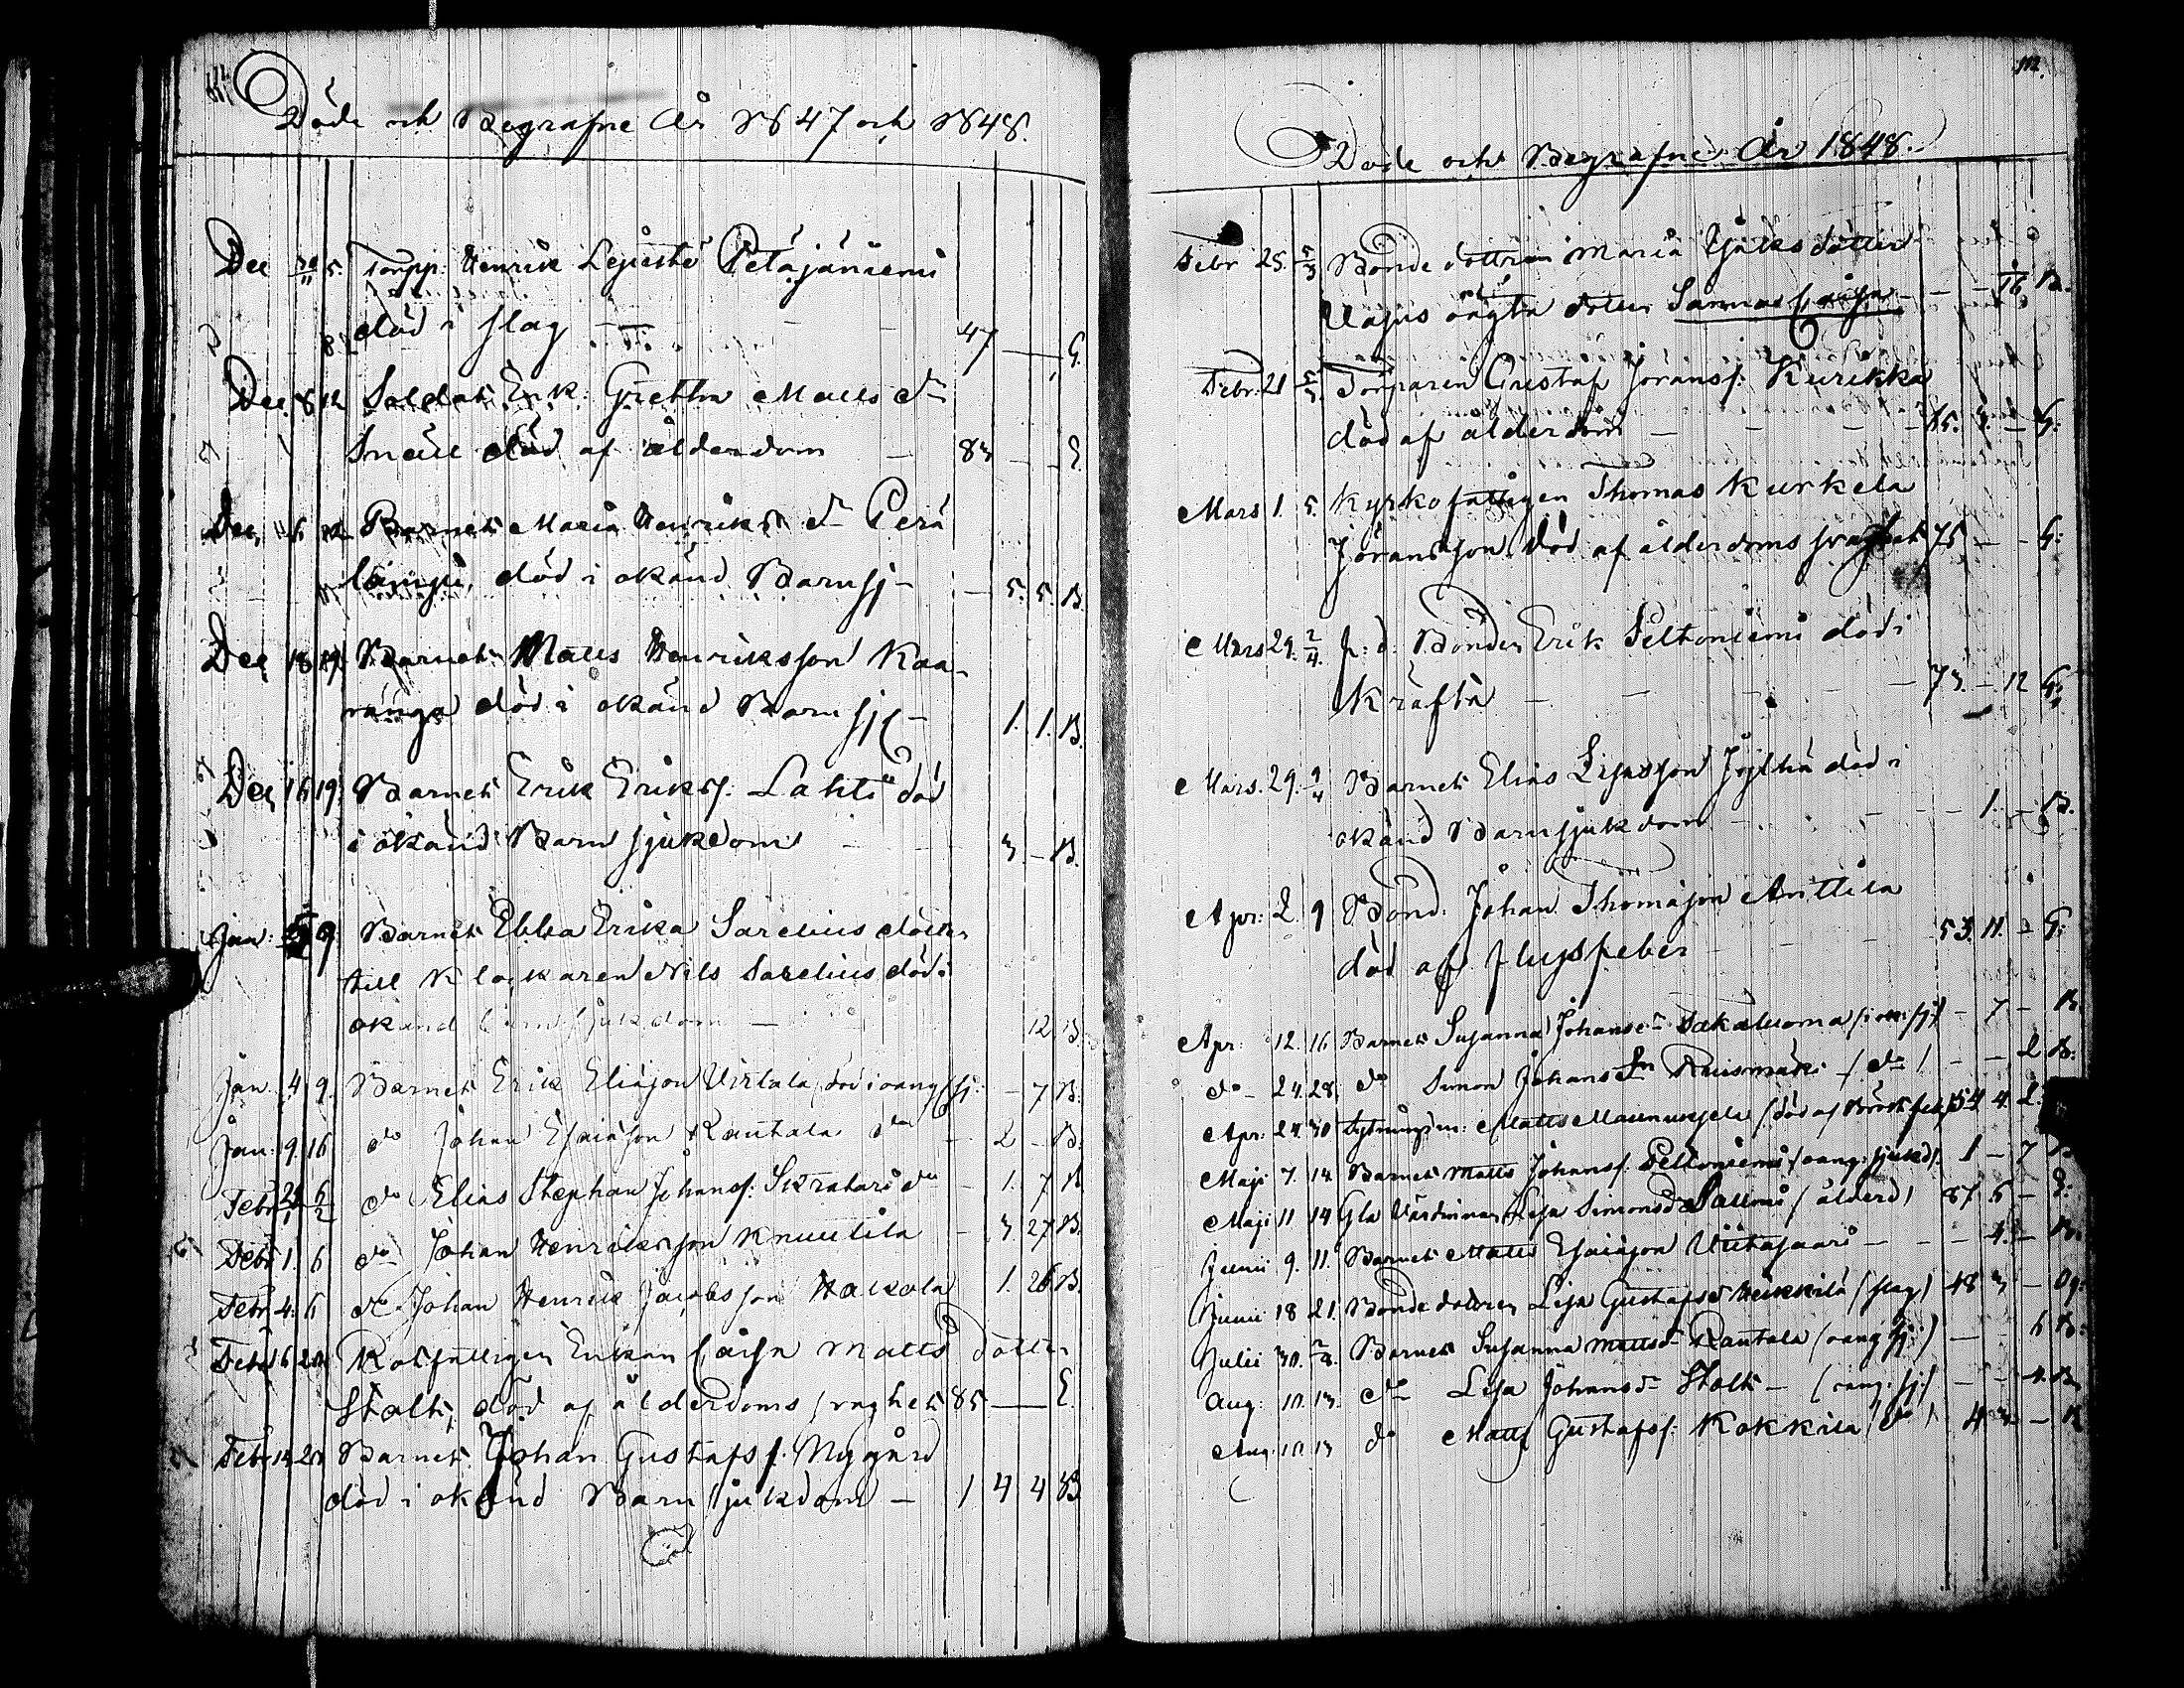 Döde och Begrafne År 1847 och 1848.
Dec 30/11 5. Torpp: Henrik Petäjäniemi
död i slag — 47 — — G.
Dec. 8 12 Saldat: Enk: Gretha Matts dr
Snäll död af ålderdom — 83 — — E.
Dec, 6 12 Barnet Maria Henriks dr Perä
lampi, död i okänd Barnsj — 5. 5. B.
Dec, 18 19. Barnet Matts Henriksson Kaa-
ranga död i okänd Barnsj — 1. 1. B.
Dec, 16 19. Barnet Erik Eriks f. Lahti död
i okänd Barnsjukdom — 3. — B.
Jan: 5 9 Barnet Ebba Erika Sarelius dotter
till Klockaren Nils Sarelius död i
okänd Barnsjukdom — 12 B.
Jan. 4. 9. Barnet Erik Eliasson Virtala, död i oang. sj: — 7 B.
Jan: 9. 16 do Johan Esaiasson Rantala do — 2 — B.
Febr 29/1 6/2 do Elias Stephan Johans f. do — 1. 7 B
Febr 1. 6 do Johan Henriksson Knuutila — 3 27 B.
Febr. 4. 6 do Johan Henrik Jacobsson Hakola 1. 26 B.
Febr 6 20 Rotfattigen Enkan Caisa Matts dotter
Stolt, död af ålderdoms svaghet 85 — E.
Febr 13 20 Barnet Johan Gustafs f. Nygård
död i okänd Barnsjukdom — 1 4 4 B
112.
Döde och Begrafne År 1848.
Febr 25. 5/3 Bonde dottren Maria
oägta dotter Sanna Caisa — — 16 B.
Febr. 21 5/3 Torparen Gustaf Jöransf. Kurikka
död af ålderdom — — 4. — G.
Mars 1. 5. Kyrkofattigen Thomas Kurkela
Jöransson. död af ålderdoms svaghet 75 — — G:
Mars 29. 2/4. f: d: Bonden Erik Peltoniemi död i
Kräfta — — 73. — 12 G:
Mars. 29. 9/4 Barnet Elias död i
okänd Barnsjukdom — — 1. — B.
Apr: 2. 9 Bond. Johan Thomasson Anttila
död af flussfeber — 53. 11. — G:
Apr: 12. 16 Barnet Susanna Johans dr — 7 — B
do — 24. 28, do Simon Johans Sn Ruismäki (do) — — 2 B.
Apr: 24. 30 Matts (död af Bröstfeb) 54 4. 2.
Maji 7. 14 Barnet Matts Johansf. Peltoniemi (oang: sjukd) 1 — 7 B
Maji 11 14 Gla Värdinnan Lisa Simonsdr (ålderd) 87. 6 — E.
Junii 9. 11. Barnet Matts Esaiasson Viitasaari — — — 4. — B.
Junii 18 21. Bonde dotren Lisa Gustafsdr Heikkilä (slag) 48 3 — Og:
Julii 30. 2/8. Barnet Susanna Mattsdr Rantala (oang sj:) — — 6 B.
Aug: 10. 13. do Lisa Johansdr Stolt — (oang: sj:) — — 4. B.
Aug 10. 13 do Matts Gustafsf. Kokkila (do) 4 3 — B